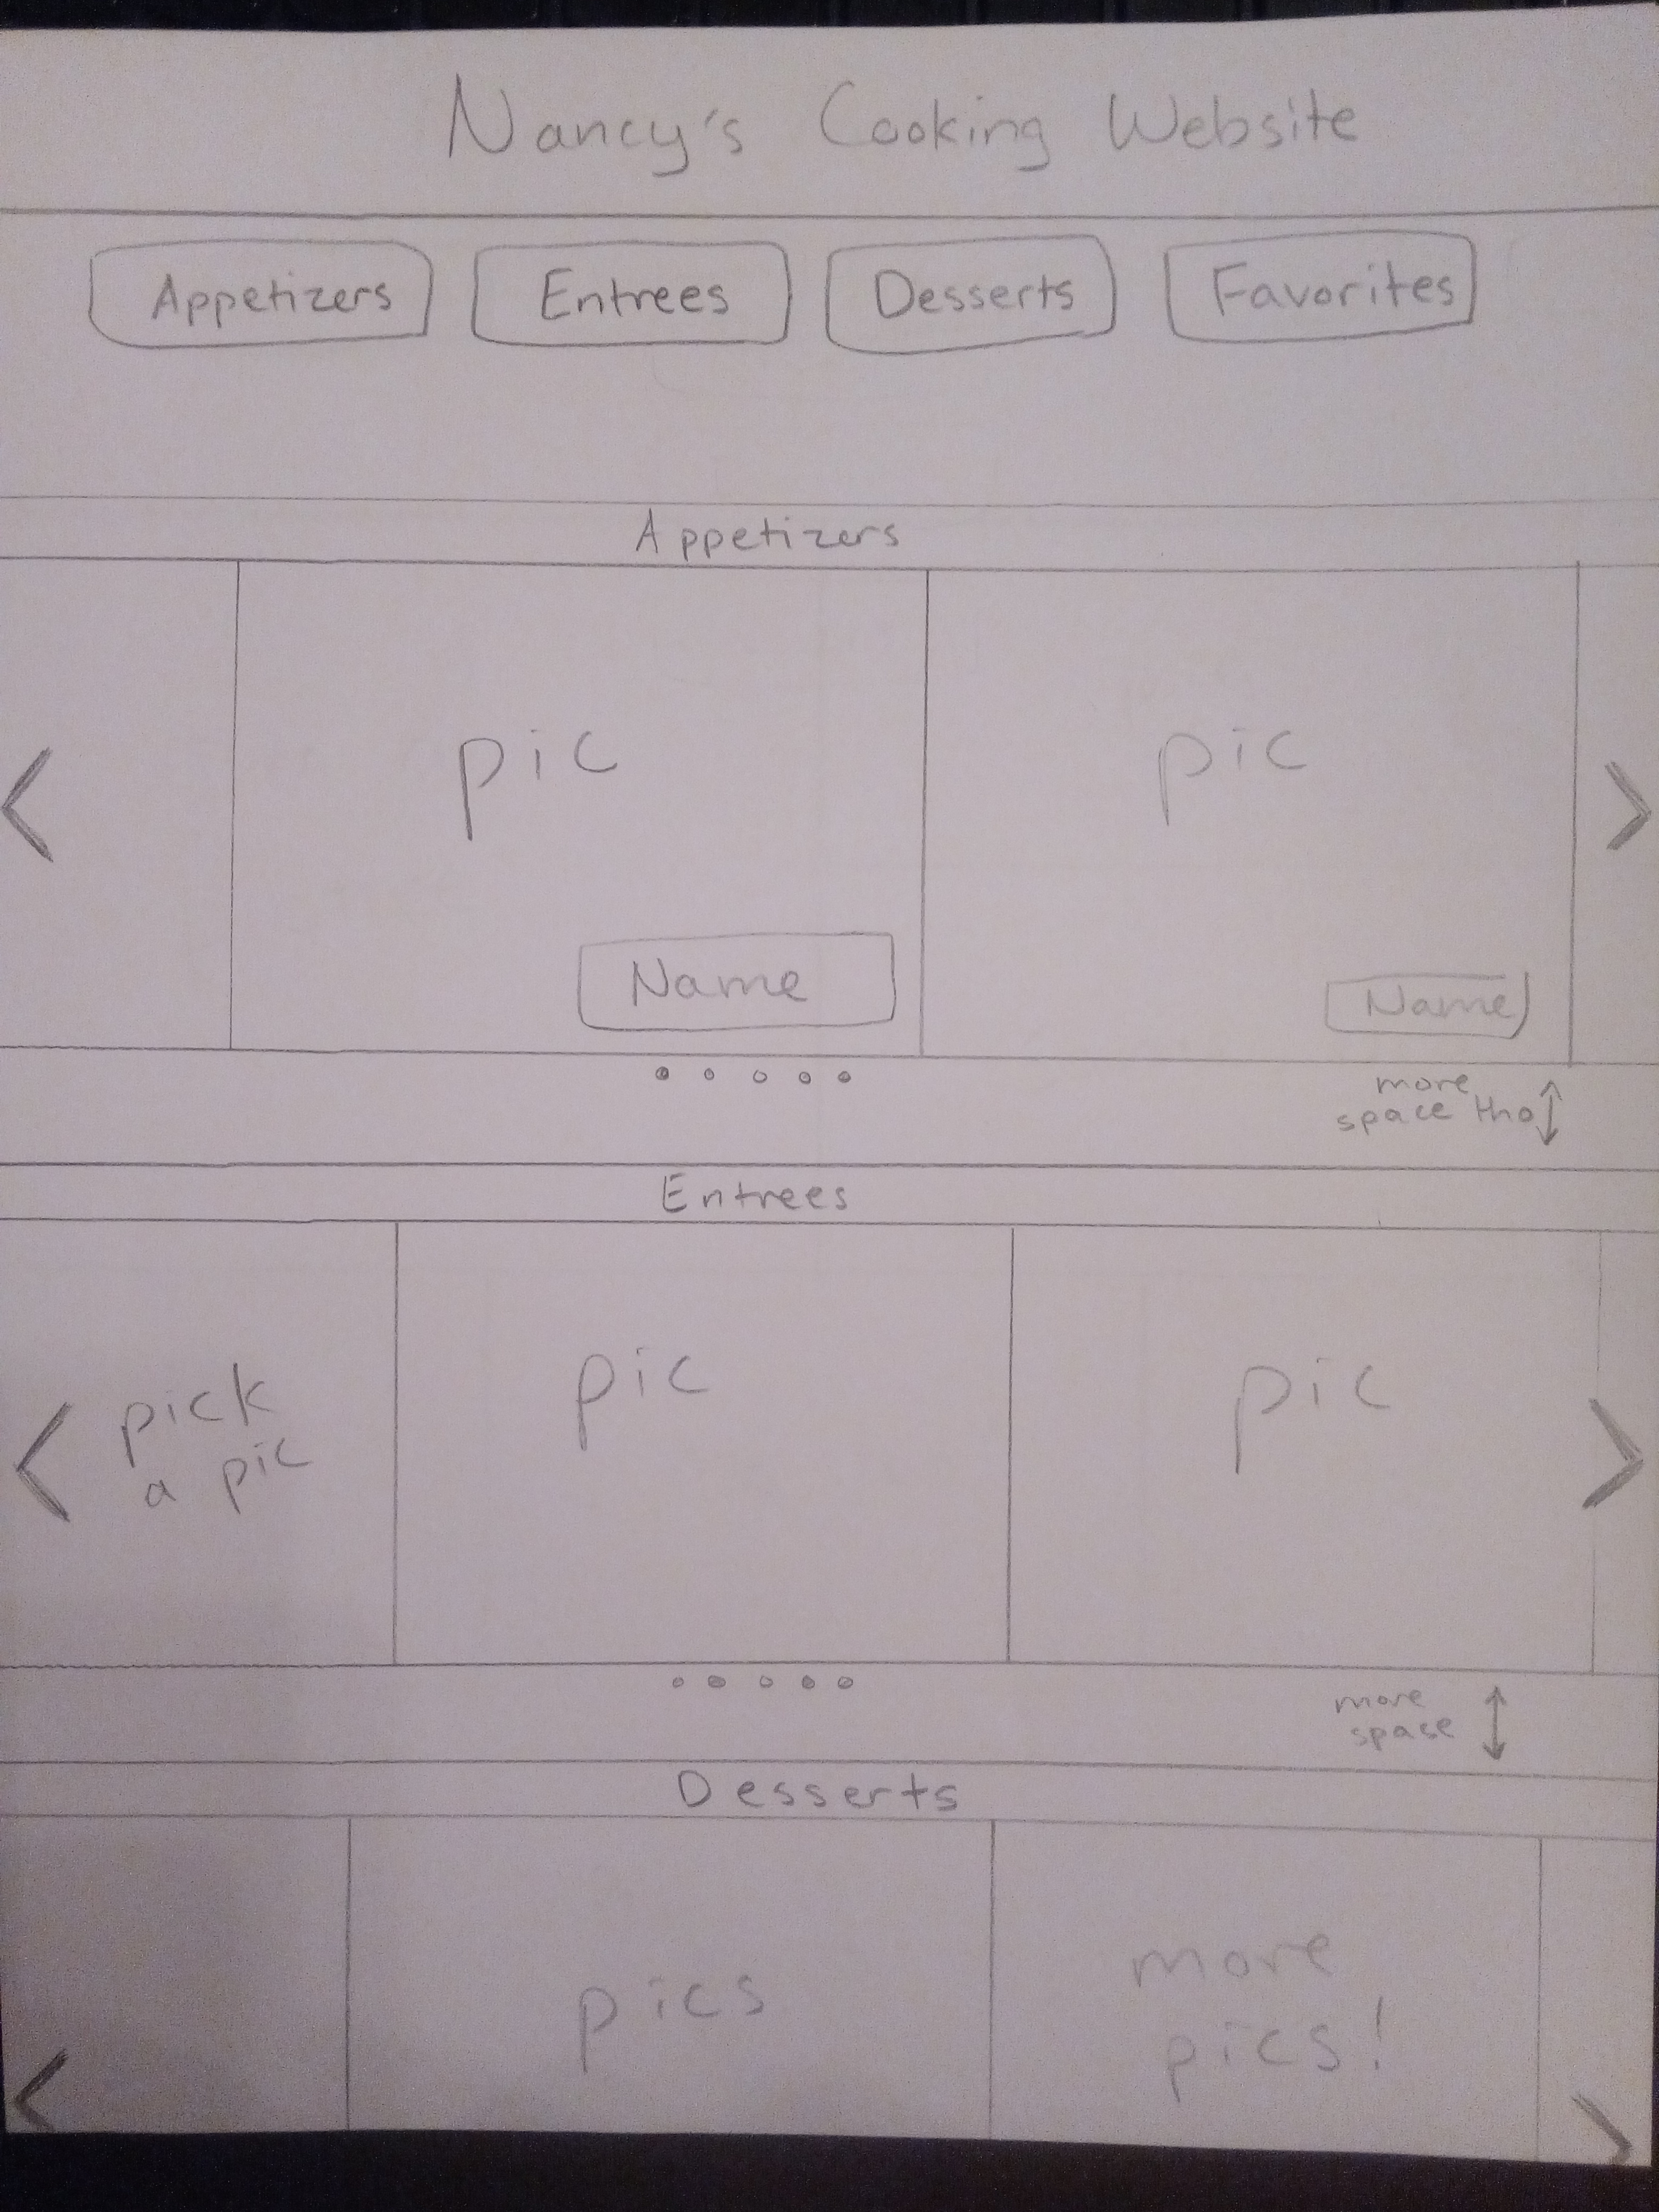 Nancy's Cooking Website
Appetizers
Entrees
Desserts
Favorites
Appetizers
pic
pic
Name
Name
more
space tho
Entrees
pick
a pic
pic
pic
more
space
Desserts
pics
more
pics!